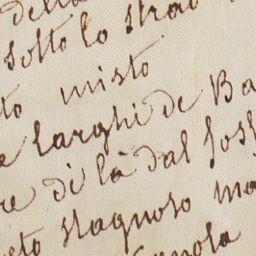 della
sotto lo strato
to misto
e larghi de Ba
re di là dal foss
eto stagnoso ma